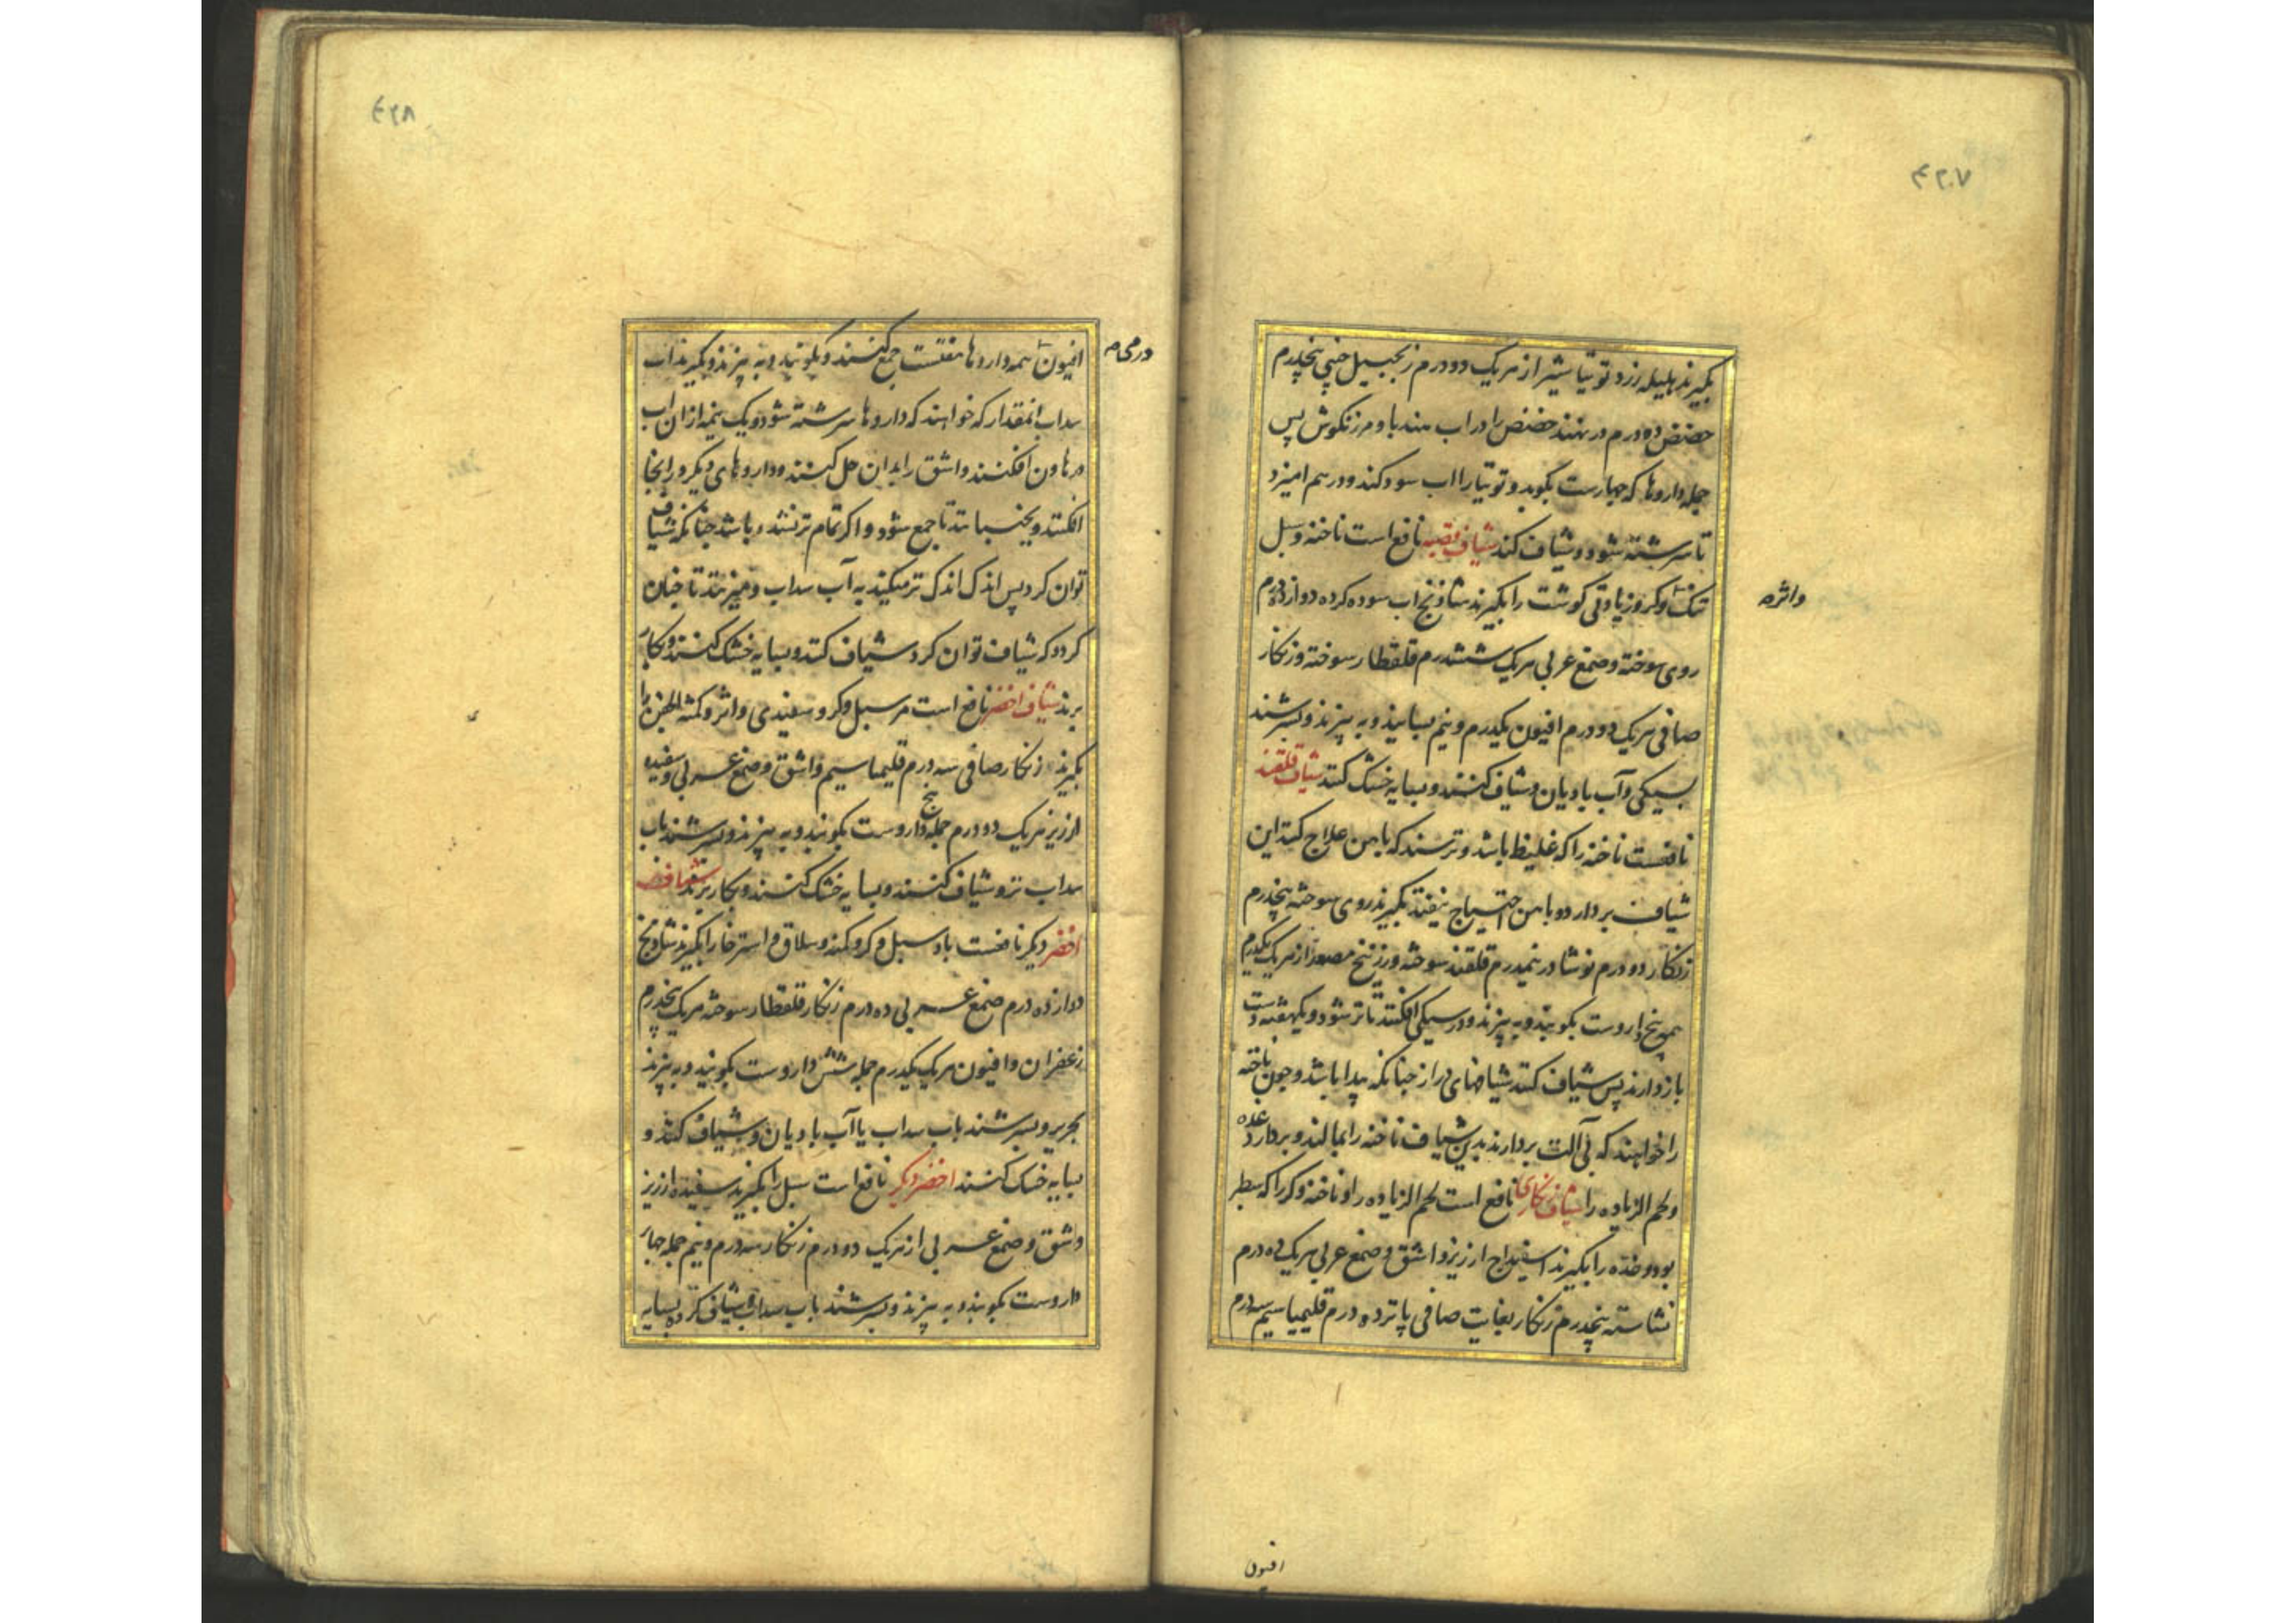 ۴۲۷
بگیرند هلیله زرد توتیا شیر از هریک دو درم زنجبیل چینی پنجدرم
حضض ده درم در نهند حضض را در اب هندبا و مرزنکوش پس
جمله داروها که چهارست بکوبد و توتیا را اب سود کند و در هم امیزد
تا سرشته شود و شیاف کند شیاف قصبه نافع است ناخنه و سبل
تنک و کر و زیادتی کوشت را بگیرند شادنج اب سوده کرده دوازده درم
واثره
روی سوخته و صمغ عربی هریک ششدرم قلقطار سوخته و زنکار
صافی هریک دو درم افیون یکدرم و نیم بسایند و به پیزند و بسرشند
بسیکی و آب بادیان و شیاف کنند و بسایه خشک کنند شیاف قلقند
نافعست ناخنه را که غلیظ باشد و ترسند که باهن علاج کنند این
شیاف بردارد و باهن احتیاج نیفتد بگیرند روی سوخته پنجدرم
زنکار دو درم نوشادر نیمدرم قلقند سوخته و زرنیخ مصعد از هریک یکدرم
همه پنج داروست بکوبند و به پیزند و در سیکی افکنند تا تر شود و یکهفته دست
بازدارند پس شیاف کنند شیافهای دراز چنانکه پیدا باشد و چون ناخنه
را خواهند که بی آلت بردارند بدین شیاف ناخنه را بمالند و بردارد غده
و لحم الزیاده را شیاف زنکاری نافع است لحم الزیاده را و ناخنه و کر را که سطبر
بود و غده را بگیرند اسفیداج ارزیز و اشق و صمغ عربی هریک ده درم
نشاسته پنجدرم زنکار بغایت صافی پانزده درم قلیمیا سیم سه درم
افیون
۴۲۸
افیون همه داروها هفتست جمع کنند و بکوبند و به پیزند و بگیرند اب
در می م
سداب انمقدار که خواهند که داروها سرشته شود و یک نیمه از ان اب
در هاون افکنند و اشق را بدان حل کنند و داروهای دیکر در انجا
افکنند و بجنبانند تا جمع شود و اکر تمام تر نشده باشد چنانکه شیاف
توان کرد پس اندک اندک تر میکنند به آب سداب و میزنند تا چنان
کردد که شیاف توان کرد شیاف کنند و بسایه خشک کنند و بکار
برند شیاف اخضر نافع است مر سبل و کر و سفیدی و اثر و کمنة الجفن را
بگیرند زنکار صافی سه درم قلیمیا سیم و اشق و صمغ عربی و سفیده
ارزیز هریک دو درم جمله پنج داروست بکوبند و به پیزند و بسرشند باب
سداب تر و شیاف کنند و بسایه خشک کنند و بکار برند شیاف
اخضر دیکر نافعست باد سبل و کر و کمنه و سلاق و استرخا را بگیرند شادنج
دوازده درم صمغ عربی ده درم زنکار قلقطار سوخته هریک پنجدرم
زعفران و افیون هریک یکدرم جمله شش داروست بکوبند و به پیزند
بحریر و بسرشند باب سداب یا آب بادیان و شیاف کنند و
بسایه خشک کنند اخضر دیکر نافع است سبل را بگیرند سفیده ارزیز
و اشق و صمغ عربی از هریک دو درم زنکار سه درم و نیم جمله چهار
داروست بکوبند و به پیزند و بسرشند باب سداب و شیاف کرده بسایه